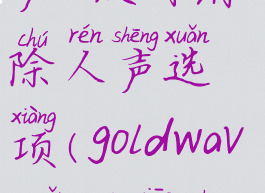 chú rén shēng xuǎn
除人声选
xiàng
项(goldwav